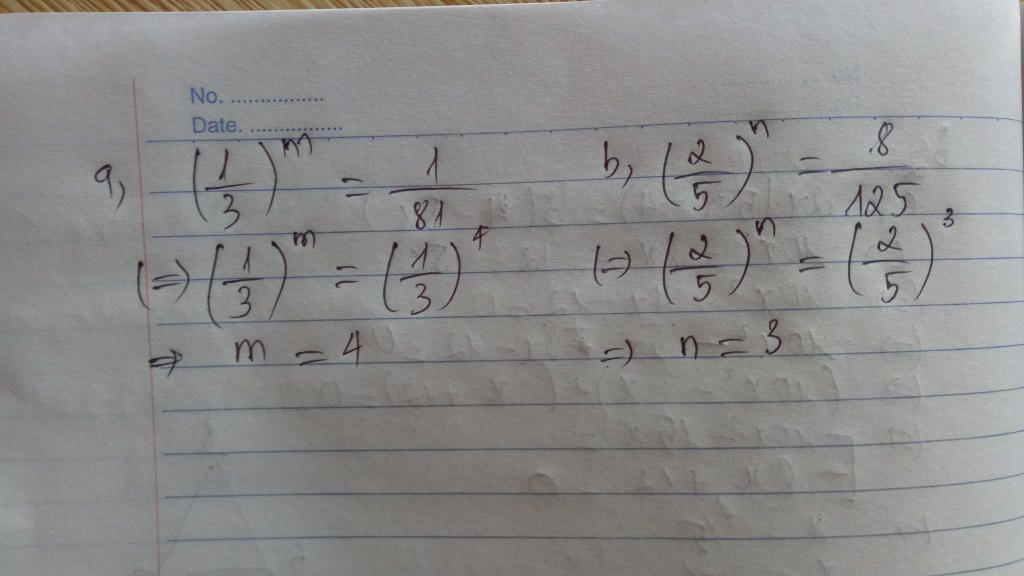 No. ................
Date. ................
a, (1/3)^m = 1/81
(=) (1/3)^m = (1/3)^4
=> m = 4
b, (2/5)^n = 8/125
(=) (2/5)^n = (2/5)^3
=> n = 3